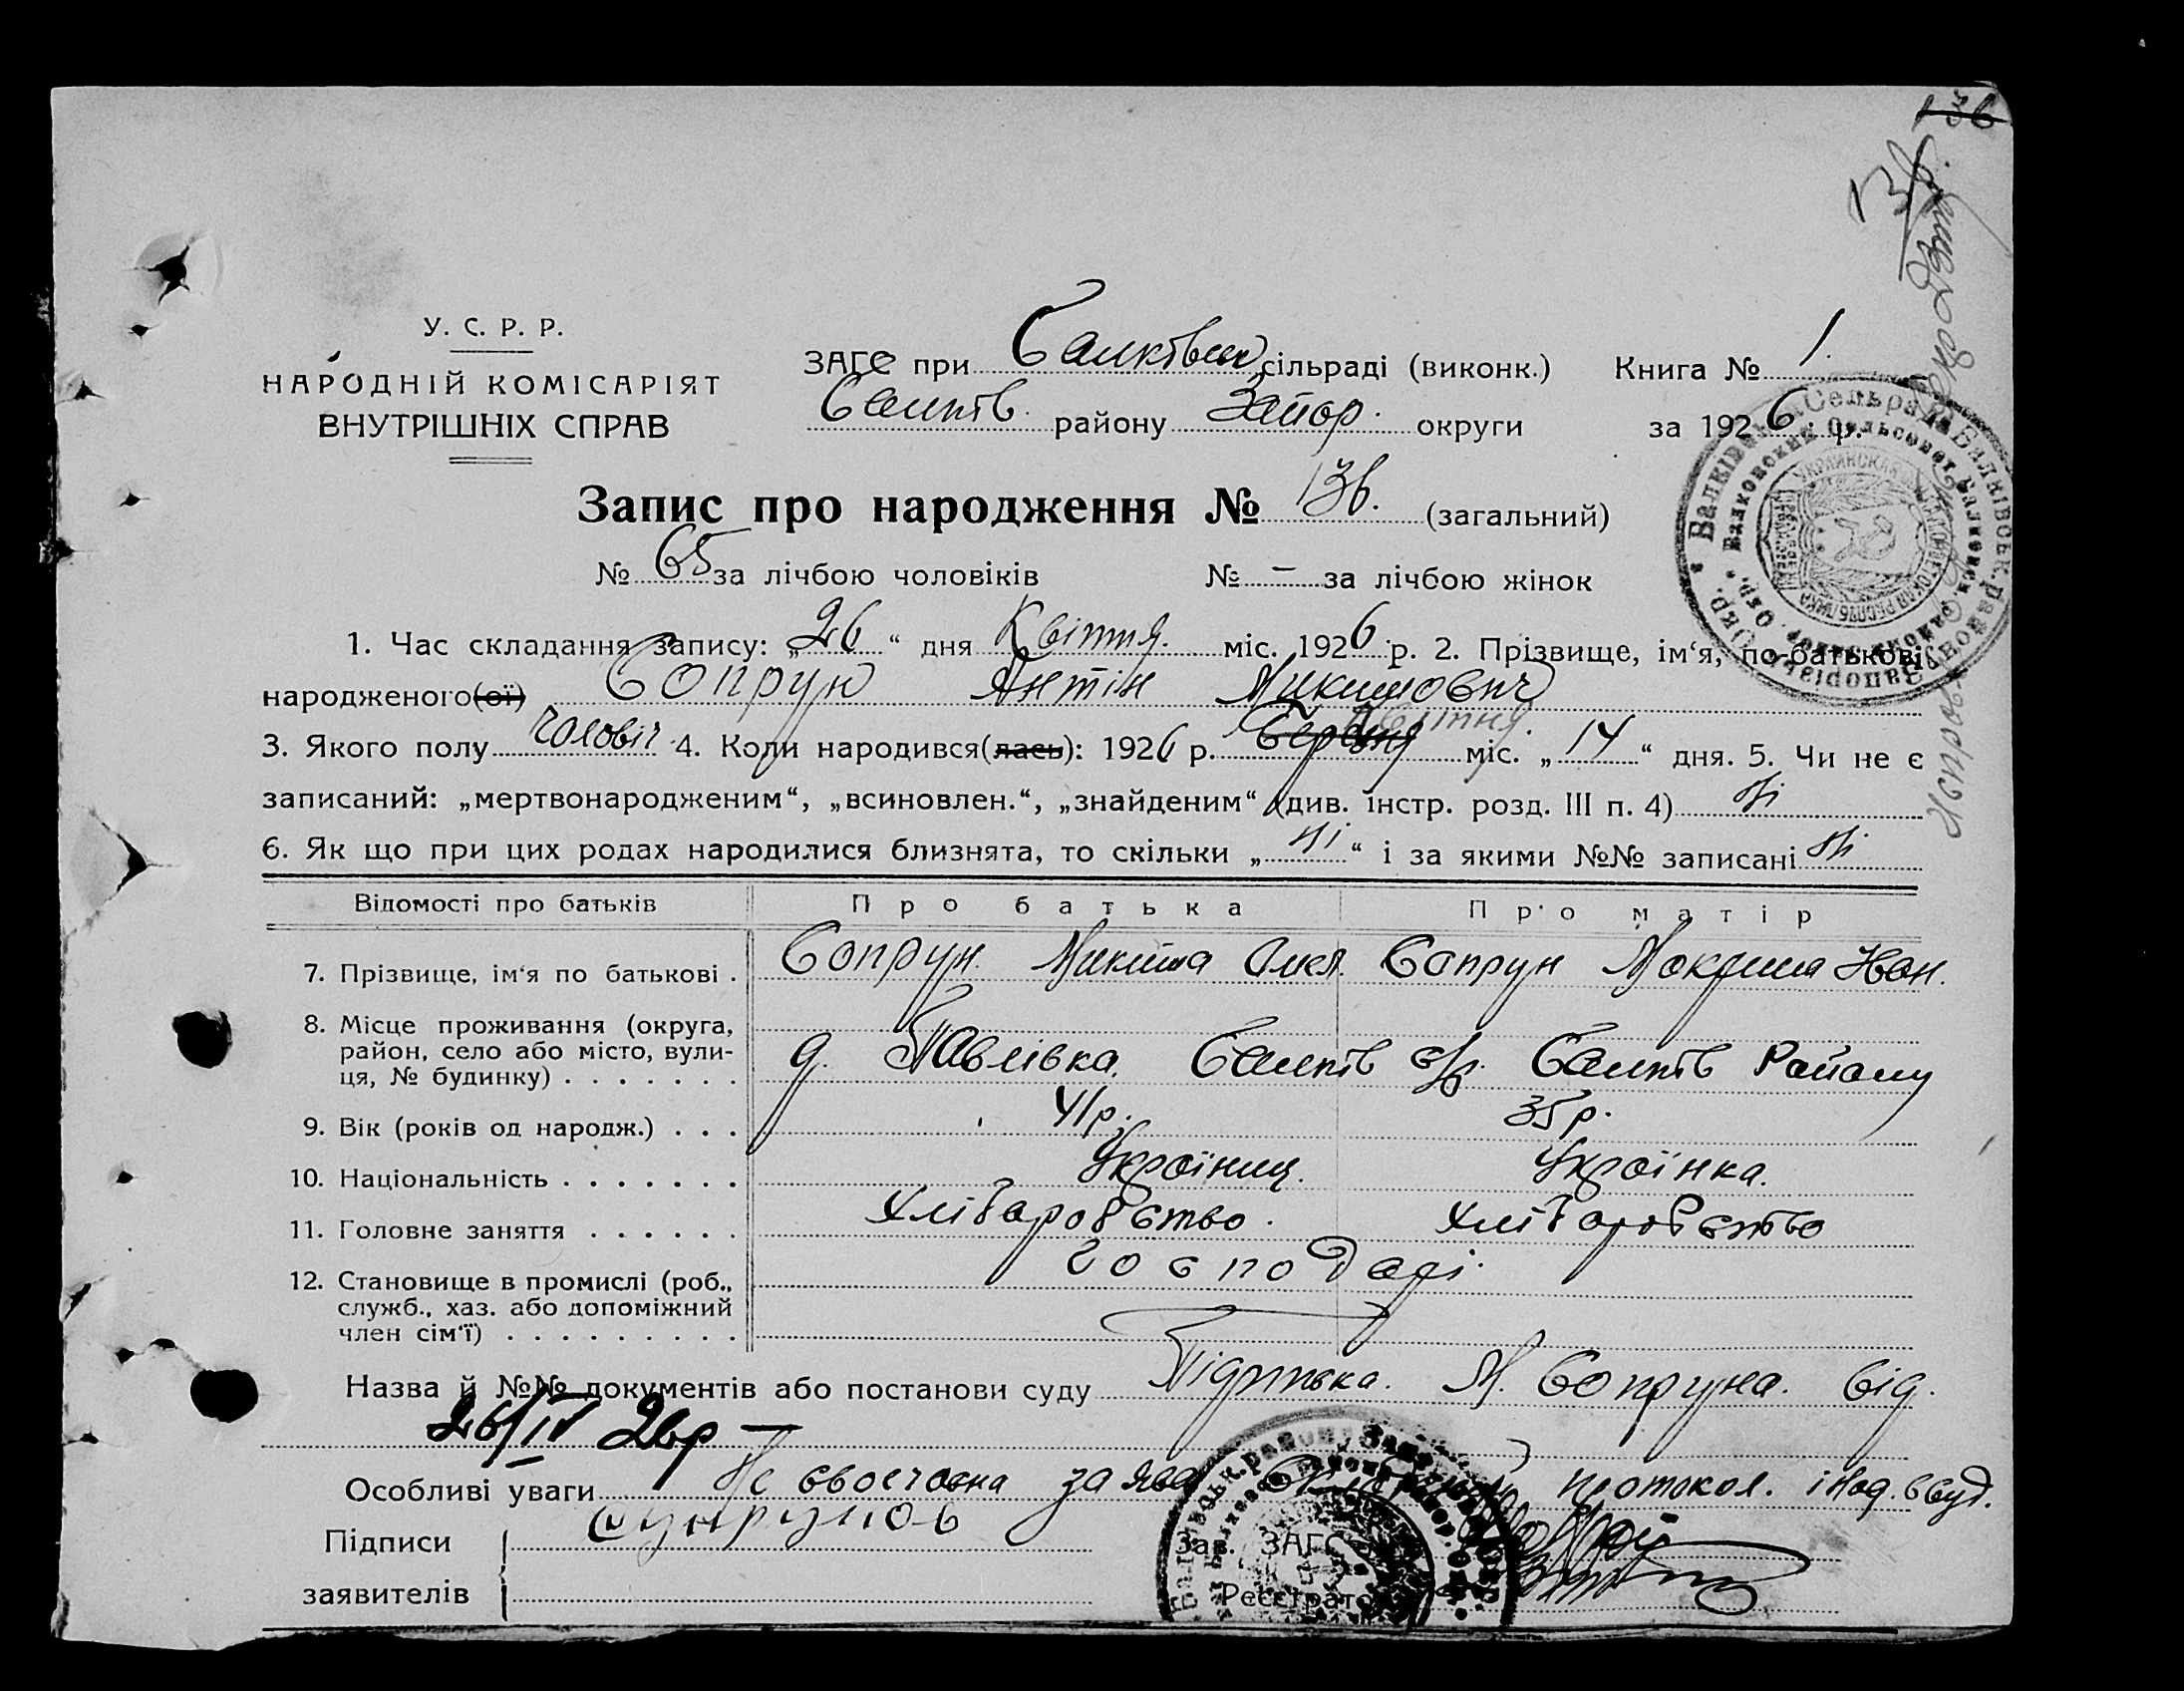 136
136.
У. С. Р. Р.
НАРОДНІЙ КОМІСАРІЯТ
ВНУТРІШНІХ СПРАВ
ЗАГС при Балківськ сільраді (виконк.) Книга № 1.
Балків. району Запор. округи за 1926 р.
Запис про народження № 136. (загальний)
№ 65 за лічбою чоловіків № – за лічбою жінок
1. Час складання запису: „26“ дня Квітня. міс. 1926 р. 2. Прізвище, ім'я, по-батькові
народженого(ої) Сопрун Антін Микитович
3. Якого полу чоловіч 4. Коли народився(лась): 1926 р. Квітня. міс. „14“ дня. 5. Чи не є
записаний: „мертвонародженим“, „всиновлен.“, „знайденим“ (див. інстр. розд. III п. 4) ні
6. Як що при цих родах народилися близнята, то скільки „ні“ і за якими №№ записані ні
Відомості про батьків Про батька Про матір
7. Прізвище, ім'я по батькові . Сопрун Микита Сопрун Мокрина Іван.
8. Місце проживання (округа,
район, село або місто, вули-
ця, № будинку) . . . . . . . д. Павлівка. Балків с/р. Балків Району
9. Вік (років од народж.) . . . 41 р. 35 р.
10. Національність . . . . . . . Україниц. Українка.
11. Головне заняття . . . . . . Хліборобство. Хліборобство
господарі.
12. Становище в промислі (роб.,
служб., хаз. або допоміжний
член сім'ї) . . . . . . . . .
Назва й №№ документів або постанови суду Підписка. М. Сопруна. від.
26/IV 26р –
Особливі уваги Не своєчасна заява протокол.
Підписи Зав. ЗАГС
заявителів Реєстратор